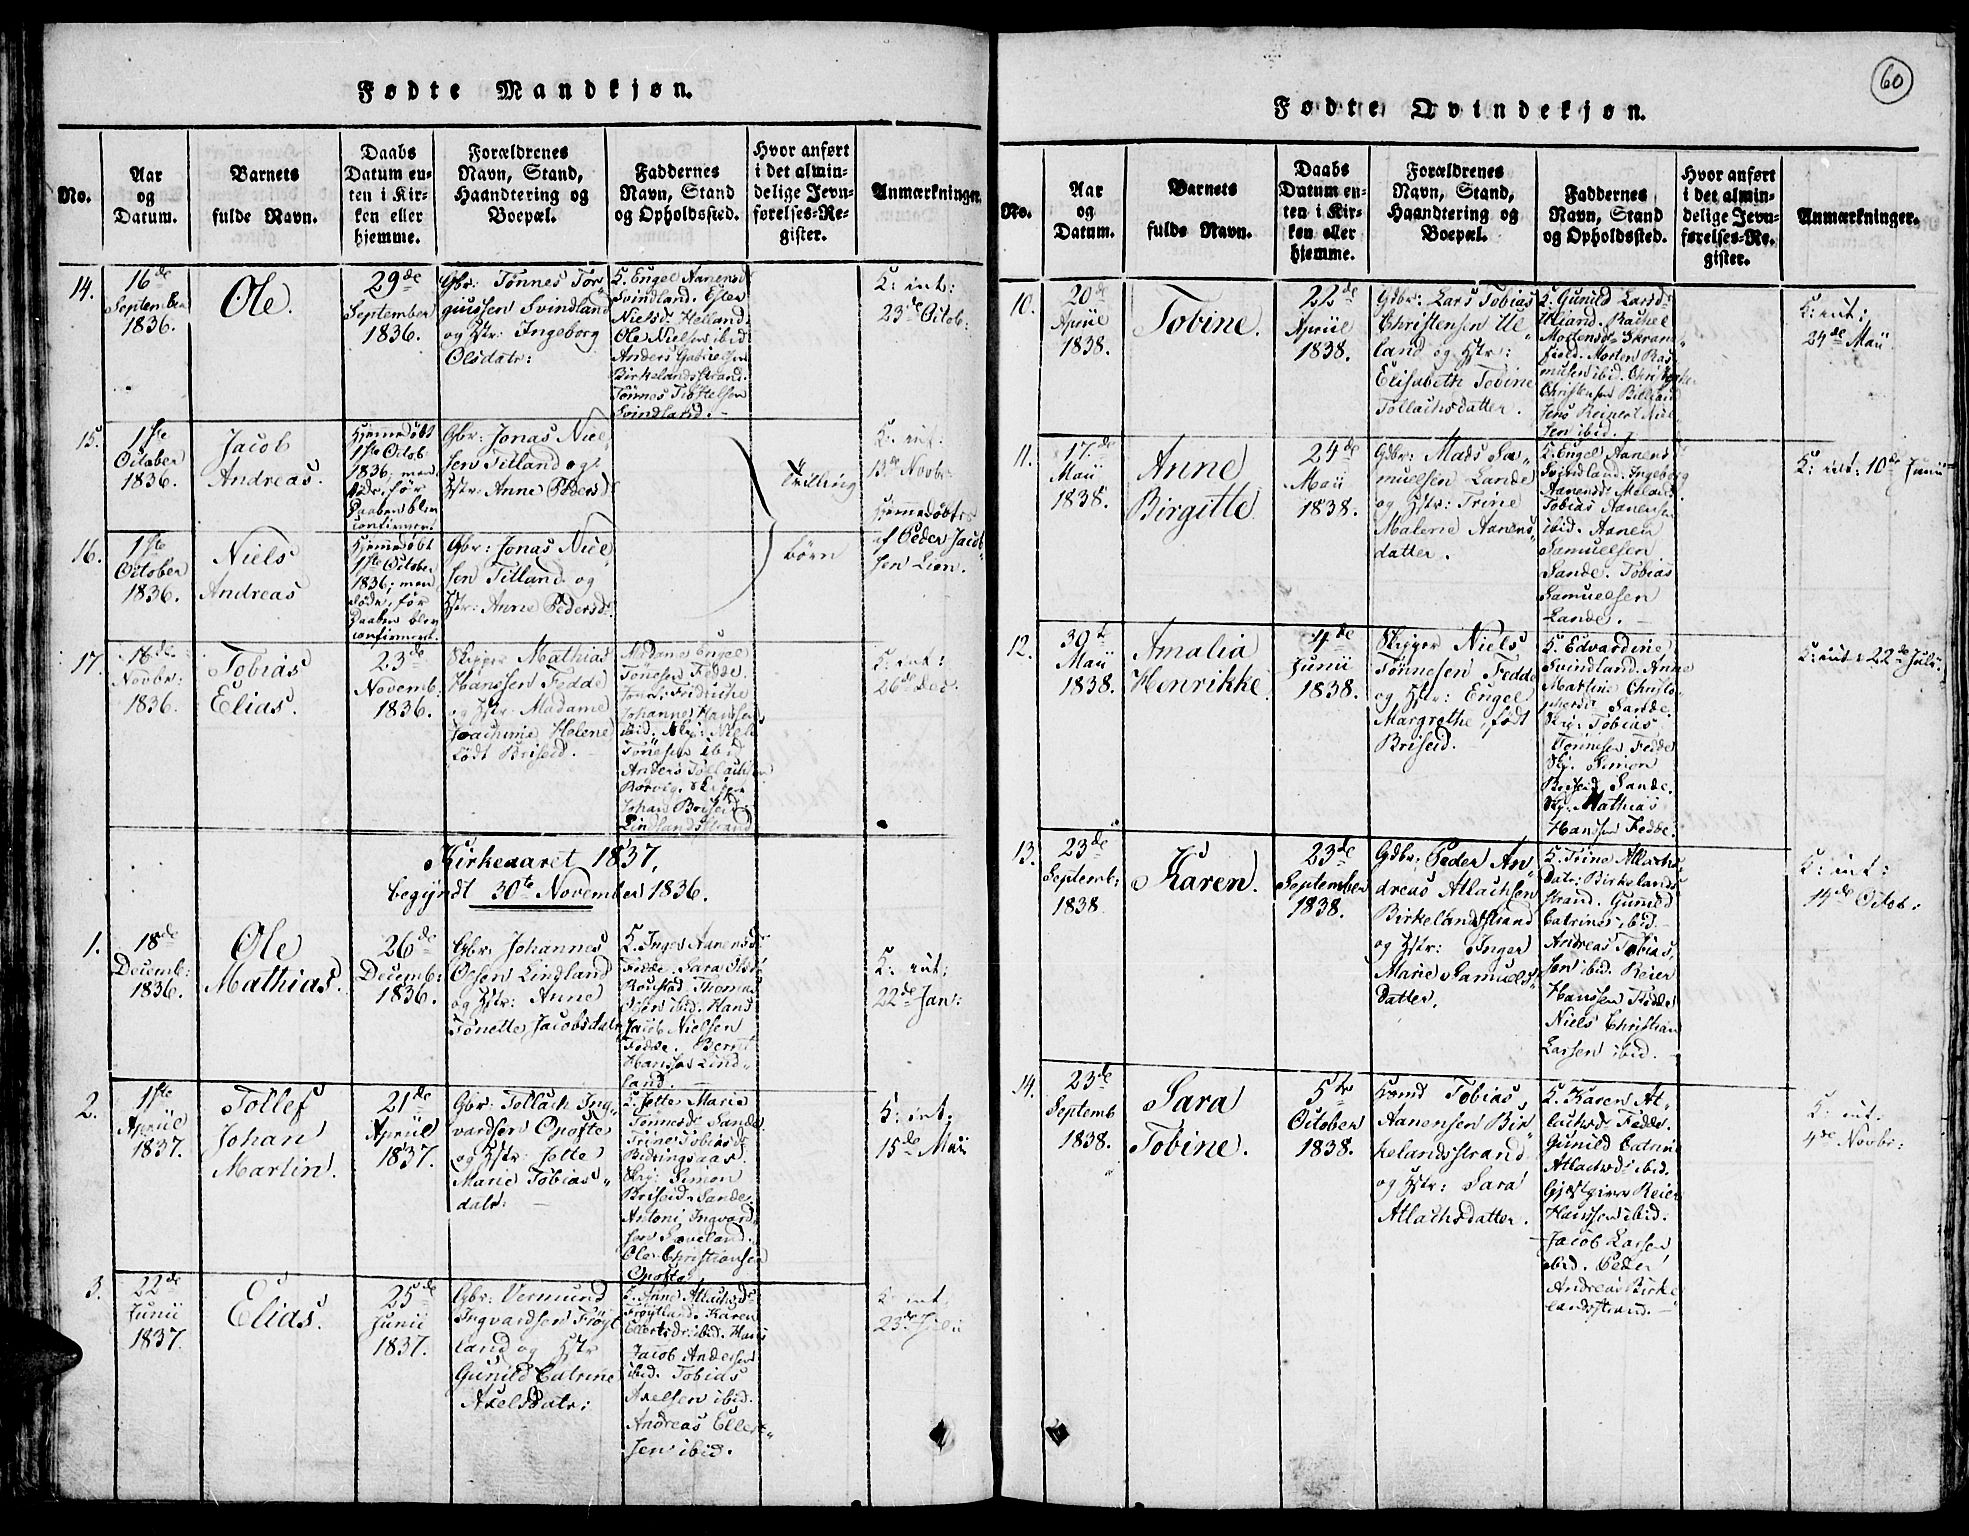 Fødte Mandkjøn.
No.
Aar
og
Datum.
Barnets
fulde Navn.
Daabs
Datum en-
ten i Kir-
ken eller
hjemme.
Forældrenes
Navn, Stand,
Haandtering og
Boepæl.
Faddernes
Navn, Stand
og Opholdssted.
Hvor anført
i det almin-
delige Jevn-
førelses-Re-
gister.
Anmærkninger.
14.
16de
September
1836.
Ole.
29de
September
1836.
Gbr: Tönnes Tor-
giussen Svindland
og Hstr: Ingeborg
Olsdatr:
K. Engel Aanensd
Svindland. Ester
Nielsd: Helland.
Ole Nielsen ibid.
Anders Gabrielsen
Birkelandsstrand.
Tönnes Tiöstelsen
Svindland.
K: int:
23de Octob:
15.
1ste
October
1836.
Jacob
Andreas.
Hjemmedöbt
1ste Octob
1836, men
döde, för
Daaben blev
confirmert.
Gbr: Jonas Niel-
sen Titland og
Hstr: Anne Pedersd
Tvilling
K. int:
13de Novbr.
Hjemmedöbtes
af Peder Jacob-
sen Lien.
16.
1ste
October
1836.
Niels
Andreas
Hjemmedöbt
1ste October
1836; men
döde, för
Daaben blev
confirmert.
Gbr: Jonas Niel-
sen Titland og
Hstr: Anne Pedersd:
börn
17.
16de
Novbr:
1836.
Tobias
Elias.
23de
Novemb:
1836.
Skipper Mathias
Hanssen Fedde
og Hstr: Madame
Joachime Helene
födt Briseid.
Madame Engel
Tönesen Fedde.
Jomfr: Fredriche
Johanne Hanssen
ibid. Skp: Niels
Tönesen ibid
Anders Tollachsen
Rörvig. Skipper
Johan Briseid
Lindlandsstrand
K: int:
26de Dec.
Kirkeaaret 1837,
begyndt 30te November 1836.
1.
18de
Decemb:
1836.
Ole
Mathias.
26de
Decemb:
1836.
Gbr: Johannes
Osen Lindland
og Hstr: Anne
Tönette Jacobsdatr
K. Inger Aanensd:
Fedde. Sara Olsd:
Roustad. Thomas
Osen ibid. Hans
Jacob Nielsen
Fedde. Bernt
Hansen Lind-
land.
K: int:
22de Jan:
2.
1ste
Apriil
1837.
Tollef
Johan
Martin.
21de
Apriil
1837.
Gbr: Tollach Ing-
vardsen Opofte
og Hstr: Jette
Marie Tobias-
datr:
K. Jette Marie
Tönnesd: Sande
Trine Tobiasd:
Bidringsaas.
Skp: Simon
Briseid Sande.
Antoni Ingvard-
sen Sæveland.
Ole Christiansen
Opofte
K: int:
15de Maii
3.
22de
Junii
1837.
Elias.
25de
Junii
1837.
Gbr: Vermund
Ingvardsen Fröyt-
land og Hstr
Gunild Catrine
Axelsdatr:
K. Anne Atlachsd:
Fröytland. Karen
Ellertsdr: ibid. Hans
Jacob Andersen
ibid. Tobias
Axelsen ibid.
Andreas Ellert-
sen ibid.
K: int:
23de Julii
60
Fødte Qvindekjøn.
No.
Aar
og
Datum.
Barnets
fulde Navn.
Daabs
Datum en-
ten i Kir-
ken eller
hjemme.
Forældrenes
Navn, Stand,
Haandtering og
Boepæl.
Faddernes
Navn, Stand
og Opholdssted.
Hvor anført
i det almin-
delige Jevn-
førelses-Re-
gister.
Anmærkninger.
10.
20de
Apriil
1838.
Tobine.
22de
Apriil
1838.
Gdbr: Lars Tobias
Christensen Ul-
land og Hstr:
Elisabeth Tobine
Tollachsdatter.
K. Gunild Larsd:
Uland. Rachel
Mortensd: Skran-
field. Morten Ras-
musen ibid.
Christensen
Jens Reinert Niel-
sen ibid.
K: int:
24de Maii
11.
17de
Maii
1838.
Anne
Birgitte
24de
Maii
1838.
Gdbr: Mads Sa-
muelsen Lande
og Hstr: Trine
Malene Aanens-
datter.
K. Engel Aanensd
Svindland. Ingeborg
Aanensd:
Tobias Aanensen
ibid. Aanen
Samuelsen
Lande. Tobias
Samuelsen
Lande.
K: int: 10de Junii
12.
30te
Maii
1838.
Amalia
Henrikke.
4de
Junii
1838.
Skipper Niels
Tönnesen Fedde
og Hstr: Engel
Margrethe, födt
Briseid.
K. Edvardine
Svindland. Anne
Martine Christo-
phersd: Sande.
Skp: Tobias
Tönnesen Fedde
Skp. Simon
Briseid, Sande.
Skp. Mathias
Hanssen Fedde.
K: int: 22de Julii
13.
23de
Septemb:
1838
Karen.
23de
September
1838.
Gdbr: Peder An-
dreas Atlachsen
Birkelandsstrand
og Hstr: Inger
Marie Samuels-
datter.
K. Trine Atlachs-
datr: Birkelands-
strand. Gunild
Catrine ibid.
Andreas Tobias-
sen ibid. Reier
Hanssen Fedde
Niels Christian
Larsen ibid.
K: int:
14de Octob:
14.
23de
Septemb
1838.
Sara
Tobine.
5te
October
1838.
Hsmd Tobias
Aanensen Bir-
kelandsstrand
og Hstr: Sara
Atlachsdatter.
K. Karen At-
lachsd: Fedde.
Gunild Catrine
Atlachsd: ibid.
Gjæstgiver Reier
Hanssen ibid.
Jacob Larsen
ibid. Peder
Andreas Birke-
landsstrand.
K: int:
4de Novbr: